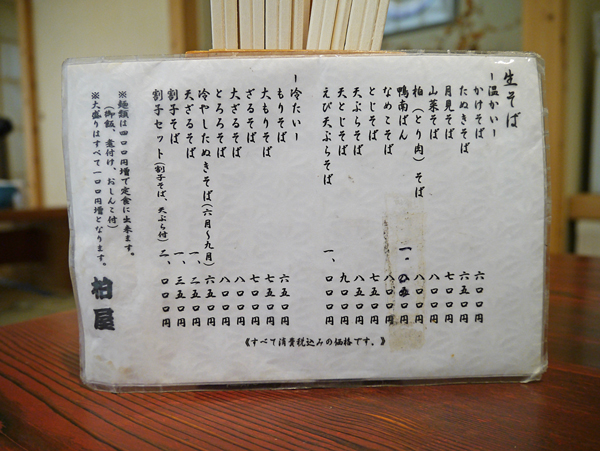 生そば
ー温かいー
かけそば 六〇〇円
たぬきそば 六五〇円
月見そば 七〇〇円
山菜そば 七〇〇円
柏（とり肉）そば 八〇〇円
鴨南ばん 一、円
なめこそば 八〇〇円
とじそば 七五〇円
天ぷらそば 八五〇円
天とじそば 九〇〇円
えび天ぷらそば 一、〇〇〇円
ー冷たいー
もりそば 六五〇円
大もりそば 七五〇円
ざるそば 七〇〇円
大ざるそば 八〇〇円
とろろそば 八〇〇円
冷やしたぬきそば（六月〜九月） 六五〇円
天ざるそば 一、二五〇円
割子そば 一、三五〇円
割子セット（割子そば、天ぷら付） 二、〇〇〇円
※麺類は四〇〇円増で定食に出来ます。
（御飯、煮付け、おしんこ付）
※大盛りはすべて一〇〇円増となります。
柏屋
《すべて消費税込みの価格です。》